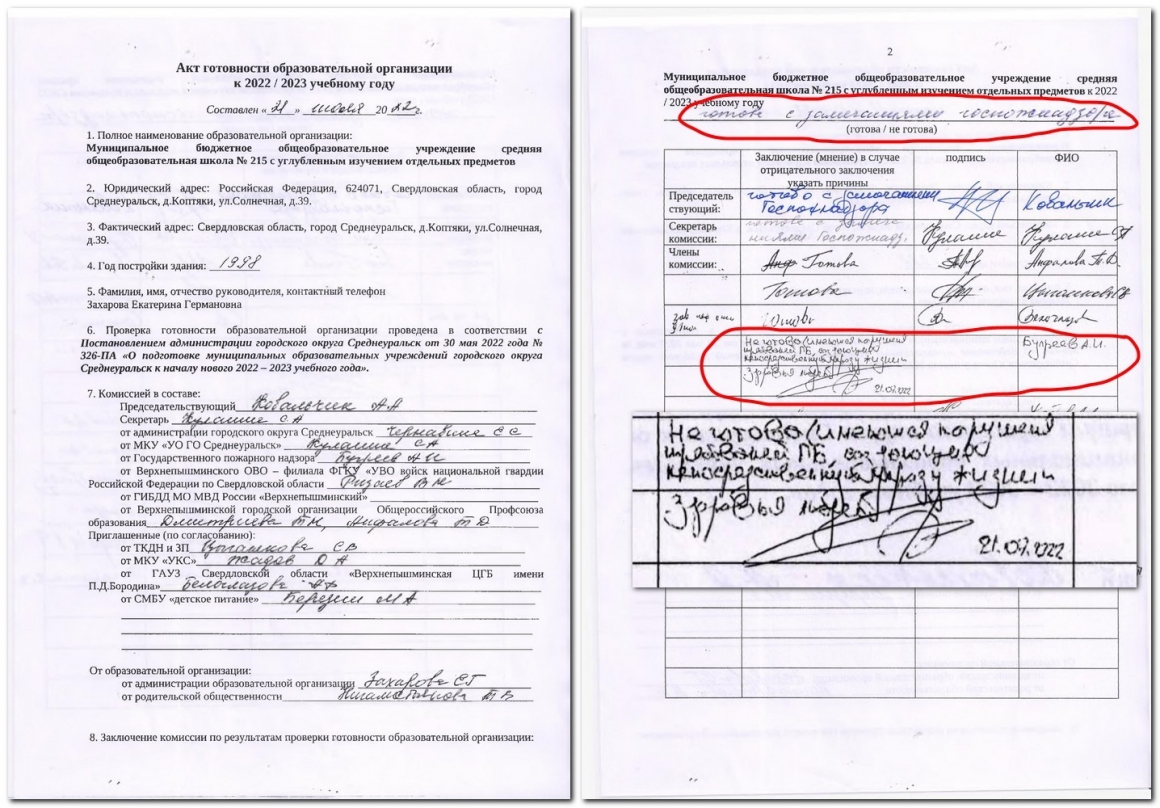 Акт готовности образовательной организации
к 2022 / 2023 учебному году
Составлен « 21 » июля 2022г.
1. Полное наименование образовательной организации:
Муниципальное бюджетное общеобразовательное учреждение средняя
общеобразовательная школа № 215 с углубленным изучением отдельных предметов
2. Юридический адрес: Российская Федерация, 624071, Свердловская область, город
Среднеуральск, д.Коптяки, ул.Солнечная, д.39.
3. Фактический адрес: Свердловская область, город Среднеуральск, д.Коптяки, ул.Солнечная,
д.39.
4. Год постройки здания: 1998
5. Фамилия, имя, отчество руководителя, контактный телефон
Захарова Екатерина Германовна
6. Проверка готовности образовательной организации проведена в соответствии с
Постановлением администрации городского округа Среднеуральск от 30 мая 2022 года №
326-ПА «О подготовке муниципальных образовательных учреждений городского округа
Среднеуральск к началу нового 2022 – 2023 учебного года».
7. Комиссией в составе:
Председательствующий Ковальчик АА
Секретарь СА
от администрации городского округа Среднеуральск СС
от МКУ «УО ГО Среднеуральск» СА
от Государственного пожарного надзора АИ
от Верхнепышминского ОВО – филиала ФГКУ «УВО войск национальной гвардии
Российской Федерации по Свердловской области»
от ГИБДД МО МВД России «Верхнепышминский»
от Верхнепышминской городской организации Общероссийского Профсоюза
образования Дмитриева ТН, Анфалова ТД
Приглашенные (по согласованию):
от ТКДН и ЗП СВ
от МКУ «УКС» ЮА
от ГАУЗ Свердловской области «Верхнепышминская ЦГБ имени
П.Д.Бородина»
от СМБУ «детское питание» Березин МА
От образовательной организации:
от администрации образовательной организации Захарова ЕГ
от родительской общественности ТВ
8. Заключение комиссии по результатам проверки готовности образовательной организации:
2
Муниципальное бюджетное общеобразовательное учреждение средняя
общеобразовательная школа № 215 с углубленным изучением отдельных предметов к 2022
/ 2023 учебному году
готова с замечаниями госпожнадзора
(готова / не готова)
Заключение (мнение) в случае отрицательного заключения указать причины
подпись
ФИО
Председательствующий:
готово с замечаниями
Госпожнадзора
Секретарь комиссии:
готово с замечаниями Госпожнадз.
Члены комиссии:
Готова
Анфалова Т.Д.
Готова
Не готово (имеются нарушения
требований ПБ, создающие
непосредственную угрозу жизни и
здоровья людей)
21.07.2022
А.И.
Не готово (имеются нарушения
требований ПБ, создающие
непосредственную угрозу жизни и
здоровья людей)
21.07.2022